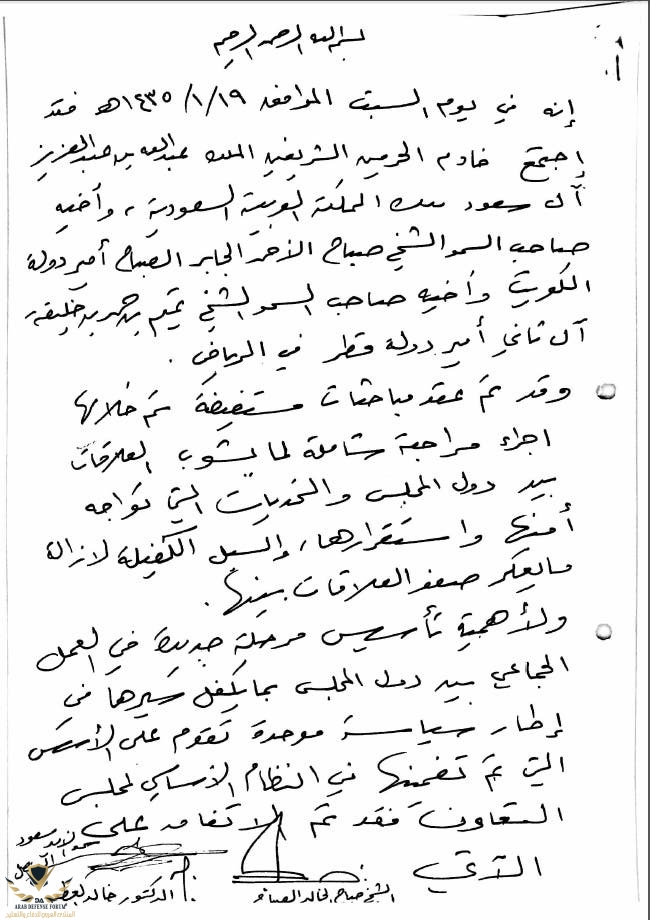 بسم الله الرحمن الرحيم
إنه في يوم السبت الموافق ١٤٣٥/١/١٩هـ فقد
إجتمع خادم الحرمين الشريفين الملك عبدالله بن عبدالعزيز
آل سعود ملك المملكة العربية السعودية، وأخيه
صاحب السمو الشيخ صباح الأحمد الجابر الصباح أمير دولة
الكويت وأخيه صاحب السمو الشيخ تميم بن حمد بن خليفة
آل ثاني أمير دولة قطر في الرياض.
وقد تم عقد مباحثات مستفيضة تم خلالها
اجراء مراجعة شاملة لما يشوب العلاقات
بين دول المجلس والتحديات التي تواجه
أمنها واستقرارها، والسبل الكفيلة لازالة
مايعكر صفو العلاقات بينها.
ولأهمية تأسيس مرحلة جديدة في العمل
الجماعي بين دول المجلس بما يكفل سيرها في
إطار سياسة موحدة تقوم على الأسس
التي تم تضمنها في النظام الأساسي لمجلس
التعاون فقد تم الاتفاق على
الآتي
الشيخ صباح الخالد الصباح
الدكتور خالد العطية
سعود الفيصل
DA
ARAB DEFENSE FORUM
المنتدى العربي للدفاع والتسليح